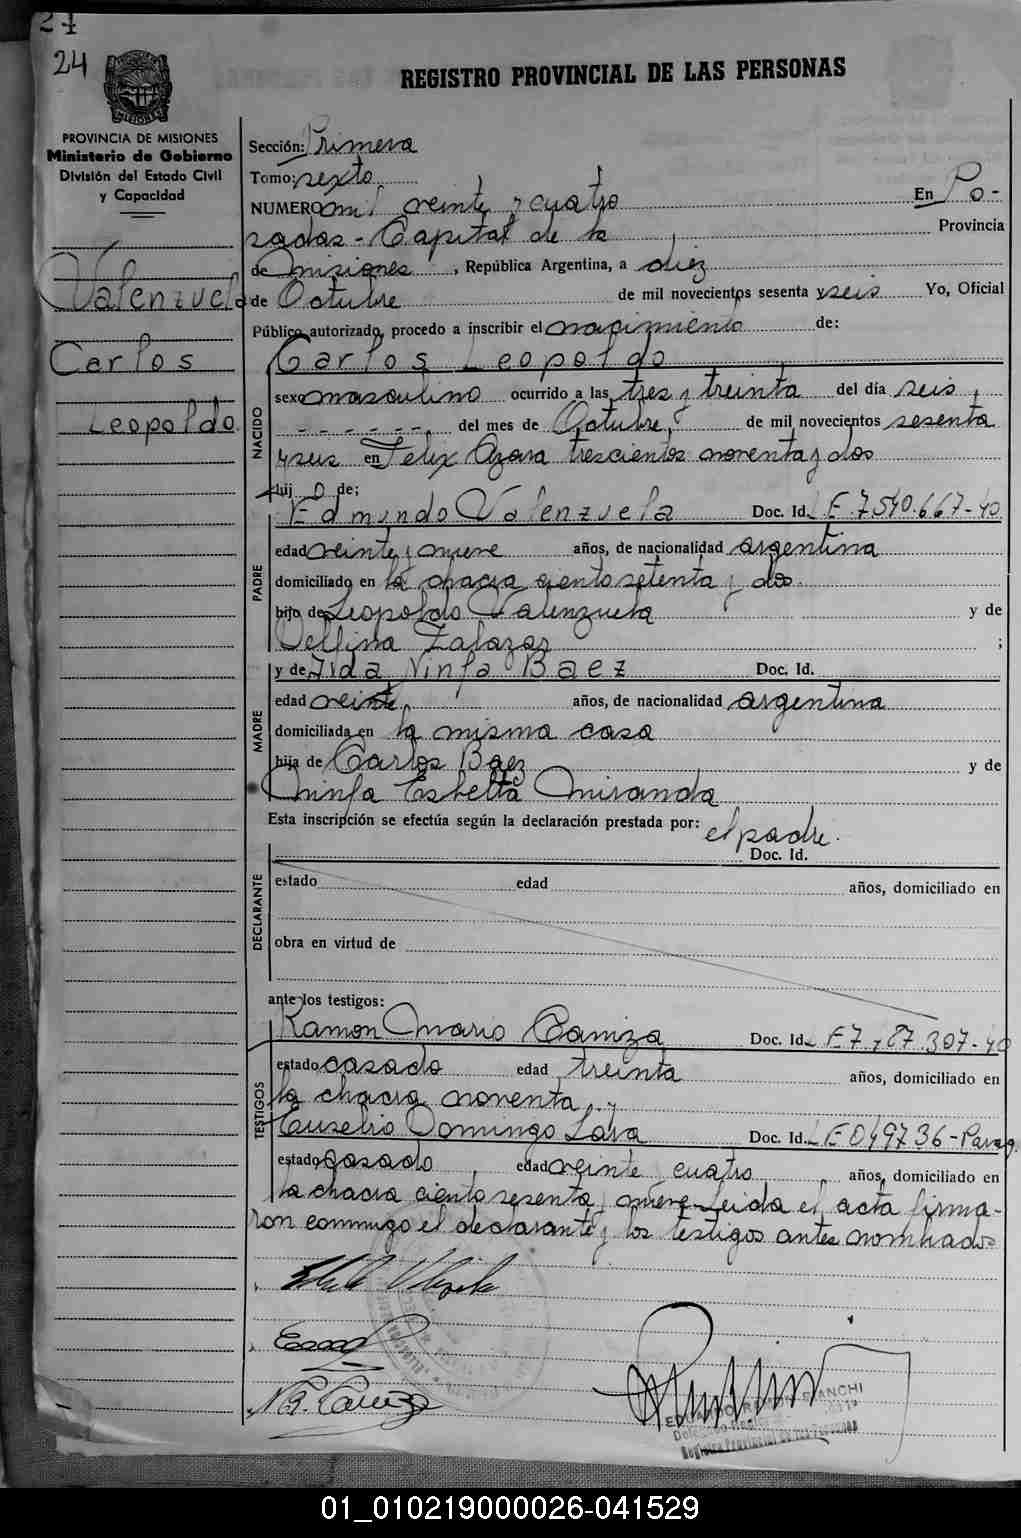 24
24
REGISTRO PROVINCIAL DE LAS PERSONAS
PROVINCIA DE MISIONES
Ministerio de Gobierno
División del Estado Civil
y Capacidad
Valenzuela
Carlos
Leopoldo
Sección: Primera
Tomo: sexto
NUMERO mil veinte y cuatro En Po-
sadas - Capital de la Provincia
de Misiones, República Argentina, a diez
de Octubre de mil novecientos sesenta y seis Yo, Oficial
Público autorizado, procedo a inscribir el nacimiento de:
Carlos Leopoldo
NACIDO
sexo masculino ocurrido a las tres y treinta del día seis,
- - - - - - del mes de Octubre, de mil novecientos sesenta
y seis en Felix Azara trescientos noventa y dos
hijo de;
Edmundo Valenzuela Doc. Id. L E. 7540.667-40
PADRE
edad veinte y nueve años, de nacionalidad argentina
domiciliado en la chacra ciento setenta y dos.
hijo de Leopoldo Valenzuela y de
Delfina Zalazar ;
y de Ilda Ninfa Baez Doc. Id.
MADRE
edad veinte años, de nacionalidad argentina
domiciliada en la misma casa
hija de Carlos Baez y de
Ninfa Estelta Miranda
Esta inscripción se efectúa según la declaración prestada por: el padre.
Doc. Id.
DECLARANTE
estado edad años, domiciliado en
obra en virtud de
ante los testigos:
Ramon Mario Caniza Doc. Id. L E 7,187.307-40
TESTIGOS
estado casado edad treinta años, domiciliado en
la chacra noventa y
Eusebio Domingo Lara Doc. Id. L E 049736-Parag.
estado casado edad veinte cuatro años, domiciliado en
la chacra ciento sesenta y nueve Leida el acta firma-
ron conmigo el declarante y los testigos antes nombrados
EDUARDO RAMON BIANCHI
Registro Provincial de las Personas
01_010219000026-041529